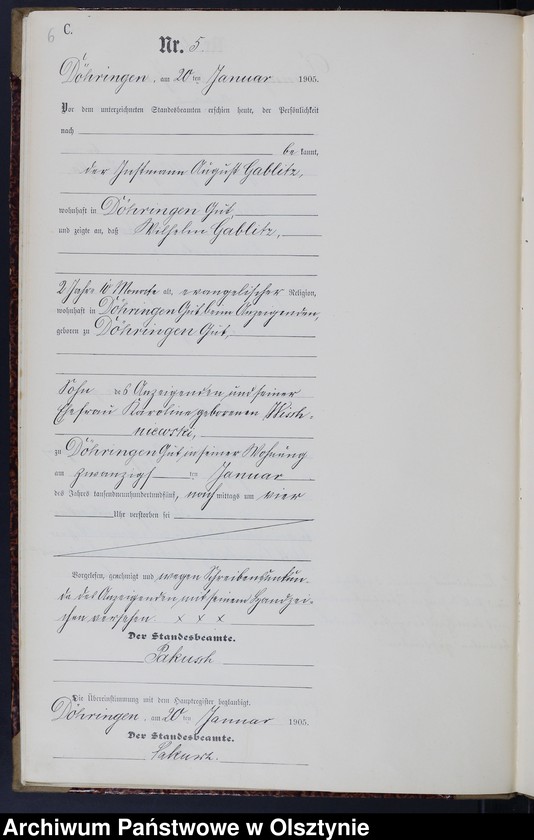 6 C.
Nr. 5.
Döhringen, am 20 ten Januar 1905.
Vor dem unterzeichneten Standesbeamten erschien heute, der Persönlichkeit
nach
be kannt,
der Instmann August Gablitz,
wohnhaft in Döhringen Gut,
und zeigte an, daß Wilhelm Gablitz,
2 Jahre 10 Monate alt, evangelischer Religion,
wohnhaft in Döhringen Gut beim Anzeigenden,
geboren zu Döhringen Gut,
Sohn des Anzeigenden und seiner
Ehefrau Karoline geborenen Wisch-
niewski,
zu Döhringen Gut in seiner Wohnung
am zwanzigsten Januar
des Jahres tausendneunhundertundfünf, nachmittags um vier
Uhr verstorben sei
Vorgelesen, genehmigt und wegen Schreibensunkun-
de des Anzeigenden mit seinem Handzei-
chen versehen. x x x
Der Standesbeamte.
Die Übereinstimmung mit dem Hauptregister beglaubigt.
Döhringen, am 20 ten Januar 1905.
Der Standesbeamte.
Archiwum Państwowe w Olsztynie